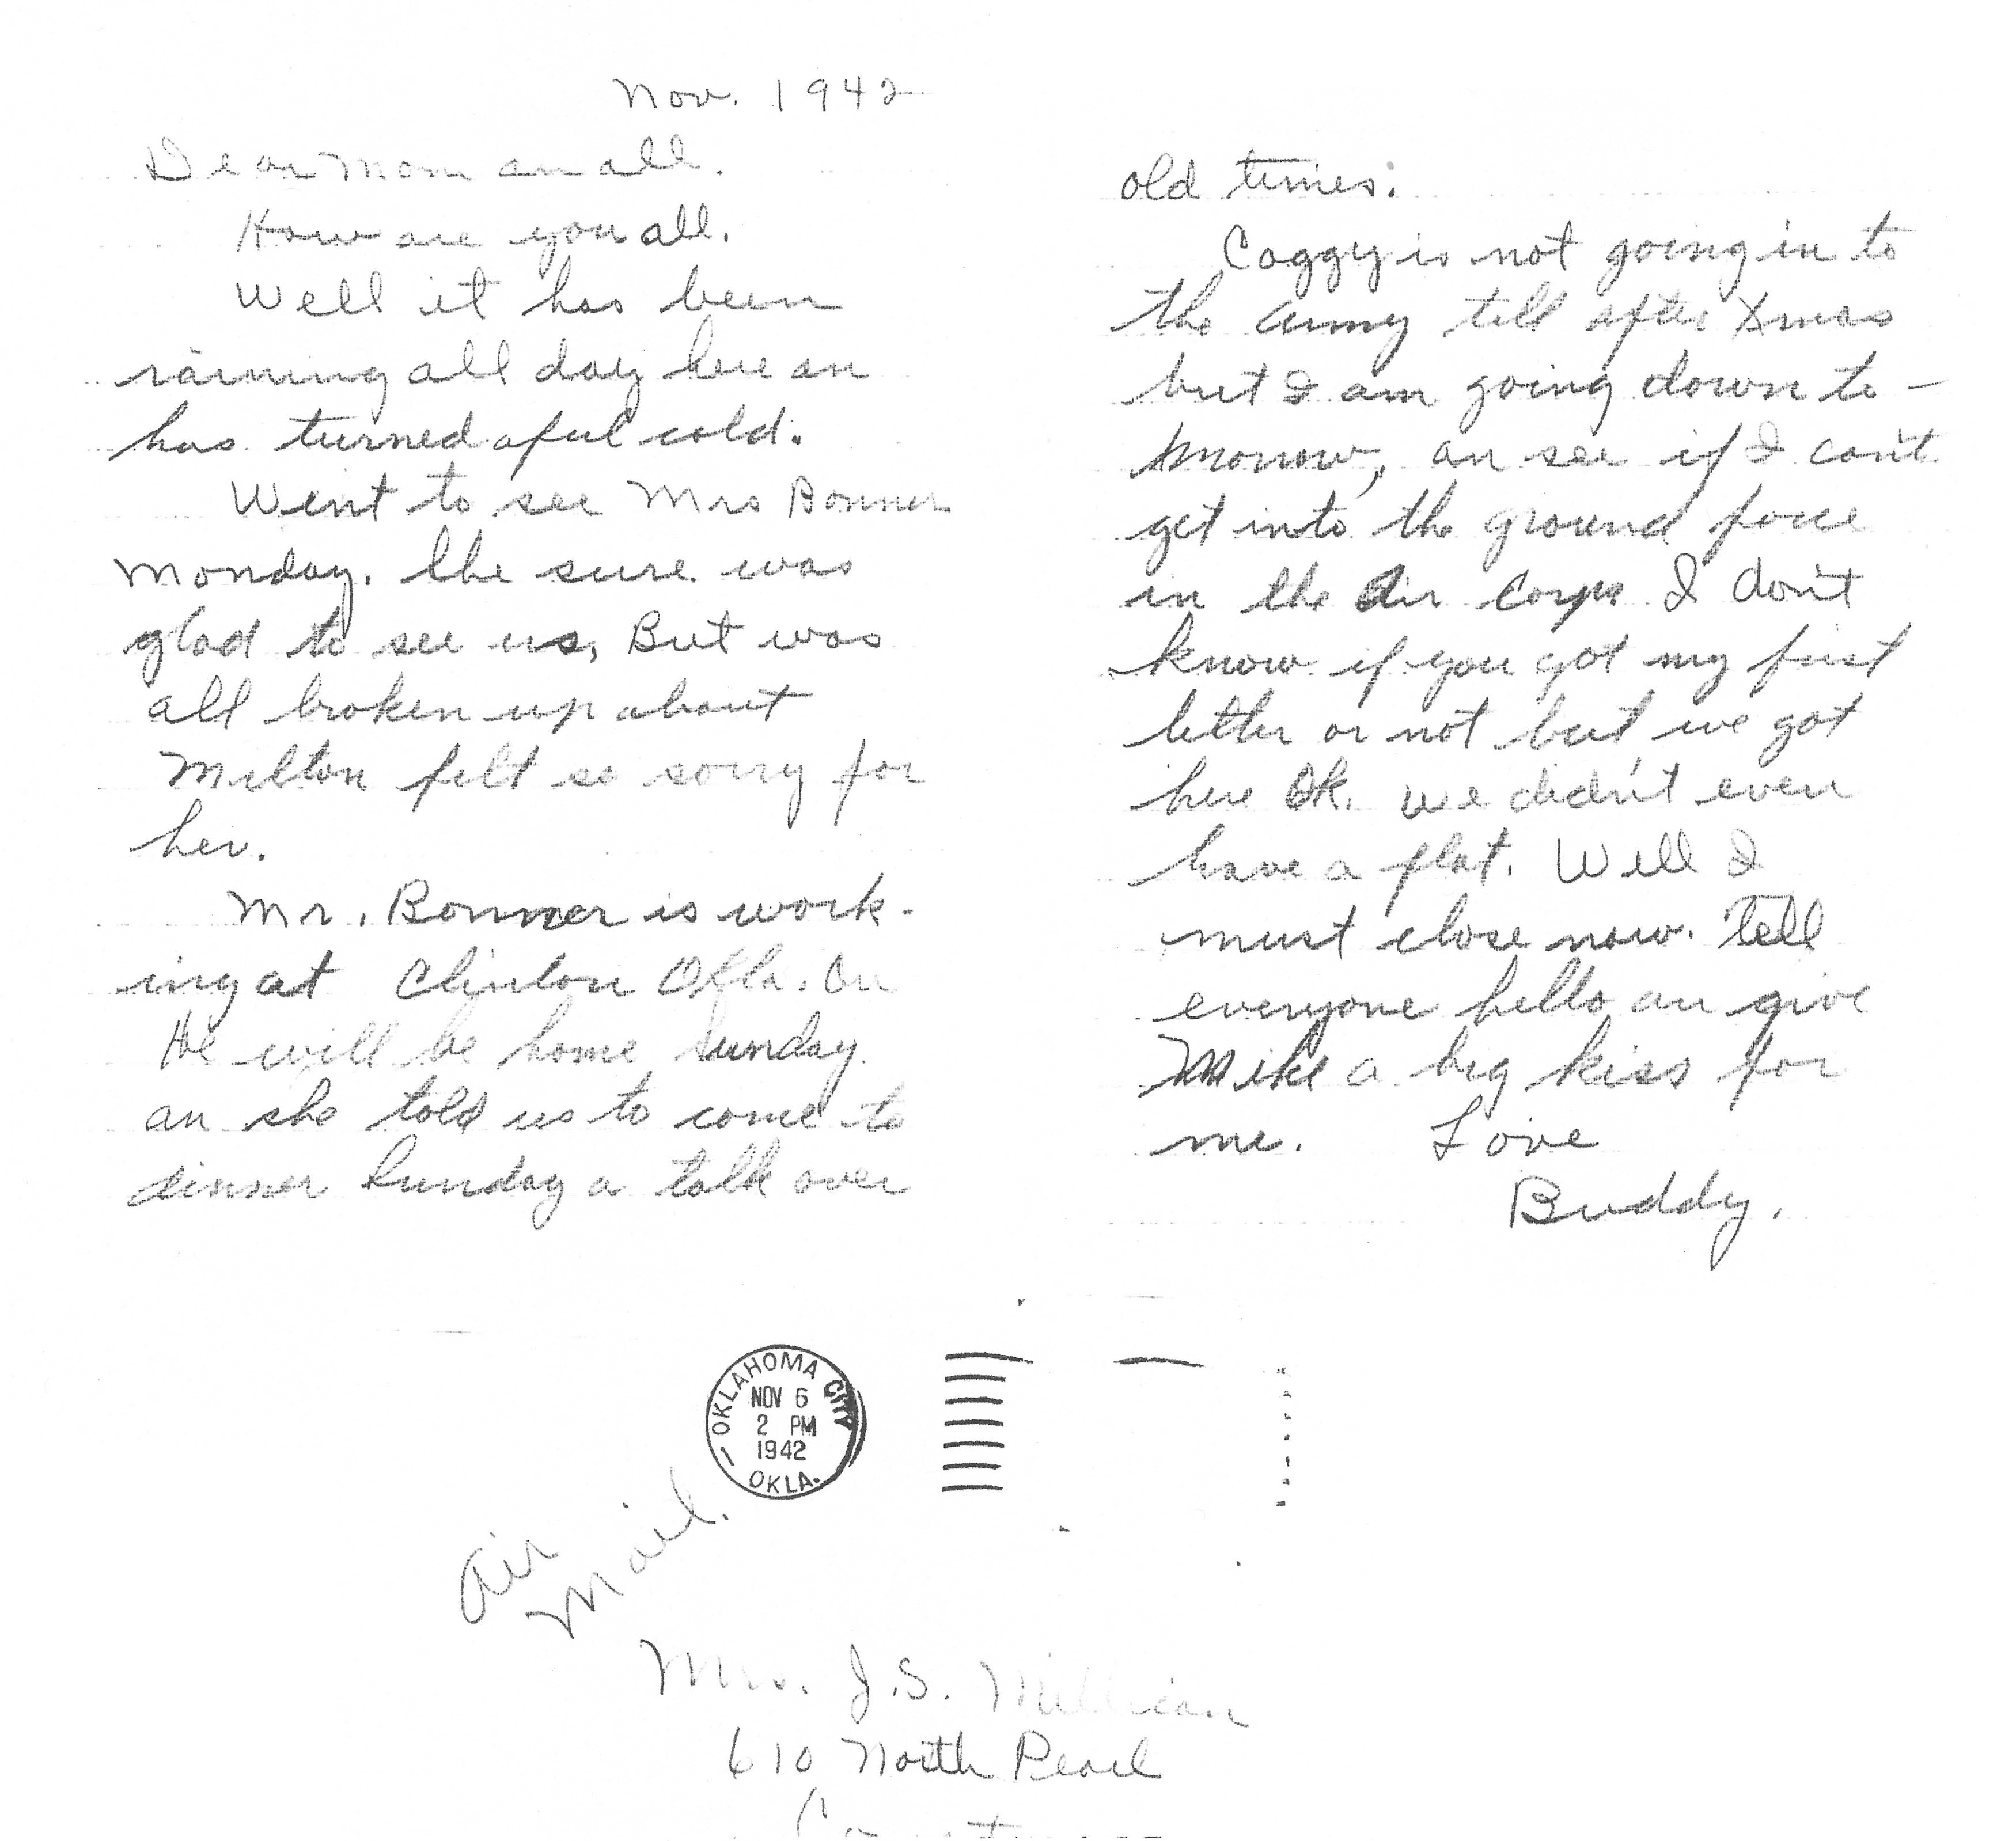 Nov. 1942
Dear Mom an all.
How are you all.
Well it has been
raining all day here an
has turned aful cold.
Went to see Mrs Bonner
Monday. She sure was
glad to see us, But was
all broken up about
Milton felt so sorry for
her.
Mr. Bonner is work-
ing at Clinton Okla. an
He will be home Sunday.
an she told us to come to
dinner Sunday a talk over
old times.
Coggy is not going in to
the army till after Xmas
but I am going down to-
morrow, an see if I can't
get into the ground force
in the Air Corps I don't
know if you got my first
letter or not but we got
here Ok. We didn't even
have a flat. Well I
must close now. Tell
everyone hello an give
Mike a big kiss for
me. Love
Buddy.
OKLAHOMA CITY
NOV 6
2 PM
1942
OKLA.
Air
Mail.
Mrs. J.S. Millican
610 North Pearl